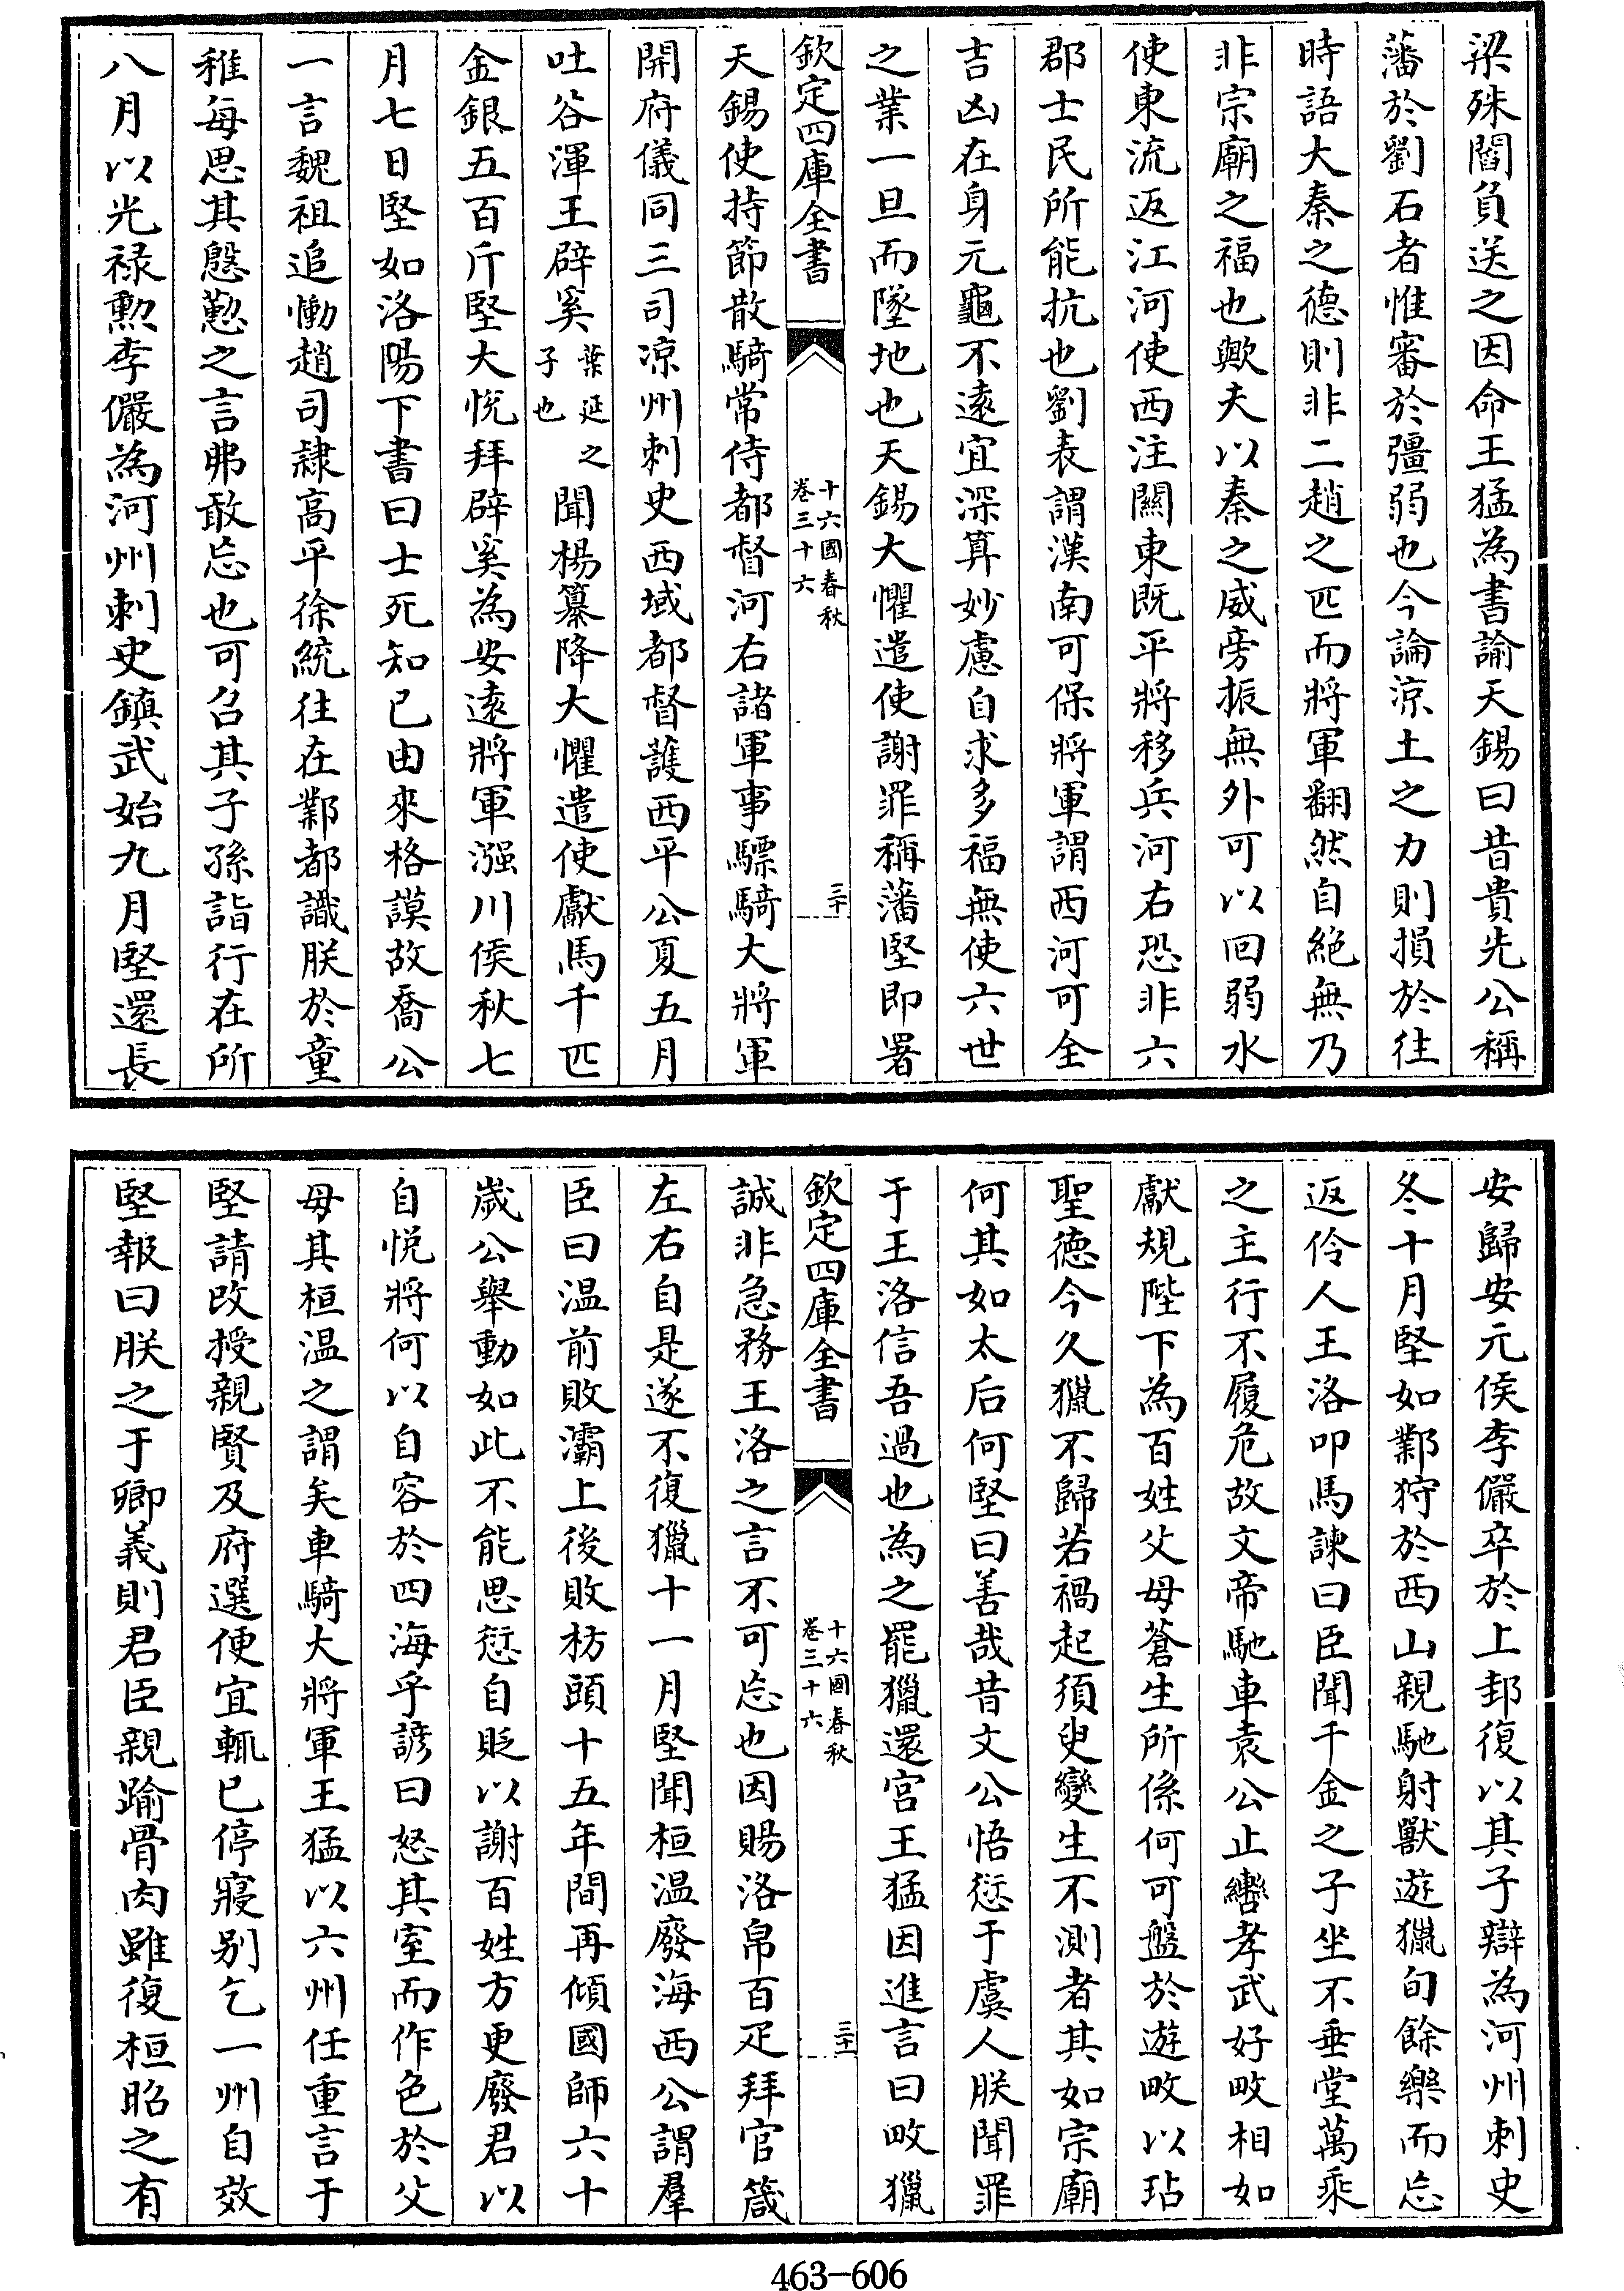 梁殊閻負送之因命王猛為書諭天錫曰昔貴先公稱
藩於劉石者惟審於彊弱也今論涼土之力則損於往
時語大秦之德則非二趙之匹而將軍翻然自絕無乃
非宗廟之福也歟夫以秦之威旁振無外可以回弱水
使東流返江河使西注關東既平將移兵河右恐非六
郡士民所能抗也劉表謂漢南可保將軍謂西河可全
吉凶在身元龜不遠宜深算妙慮自求多福無使六世
之業一旦而墜地也天錫大懼遣使謝罪稱藩堅即署
欽定四庫全書
十六國春秋
卷三十六
三十
天錫使持節散騎常侍都督河右諸軍事驃騎大將軍
開府儀同三司涼州刺史西域都督護西平公夏五月
吐谷渾王辟奚葉延之子也聞楊纂降大懼遣使獻馬千匹
金銀五百斤堅大悅拜辟奚為安遠將軍漒川侯秋七
月七日堅如洛陽下書曰士死知已由來格謨故喬公
一言魏祖追慟趙司隸高平徐統往在鄴都識朕於童
稚每思其慇懃之言弗敢忘也可召其子孫詣行在所
八月以光祿勲李儼為河州刺史鎮武始九月堅還長
安歸安元侯李儼卒於上邽復以其子辯為河州刺史
冬十月堅如鄴狩於西山親馳射獸遊獵旬餘樂而忘
返伶人王洛叩馬諫曰臣聞千金之子坐不垂堂萬乘
之主行不履危故文帝馳車袁公止轡孝武好畋相如
獻規陛下為百姓父母蒼生所係何可盤於遊畋以玷
聖德今久獵不歸若禍起須臾變生不測者其如宗廟
何其如太后何堅曰善哉昔文公悟愆于虞人朕聞罪
于王洛信吾過也為之罷獵還宮王猛因進言曰畋獵
欽定四庫全書
十六國春秋
卷三十六
三十一
誠非急務王洛之言不可忘也因賜洛帛百疋拜官箴
左右自是遂不復獵十一月堅聞桓溫廢海西公謂羣
臣曰溫前敗灞上後敗枋頭十五年間再傾國師六十
歲公舉動如此不能思愆自貶以謝百姓方更廢君以
自悅將何以自容於四海乎諺曰怒其室而作色於父
母其桓溫之謂矣車騎大將軍王猛以六州任重言于
堅請改授親賢及府選便宜輒已停寢別乞一州自效
堅報曰朕之于卿義則君臣親踰骨肉雖復桓昭之有
463-606